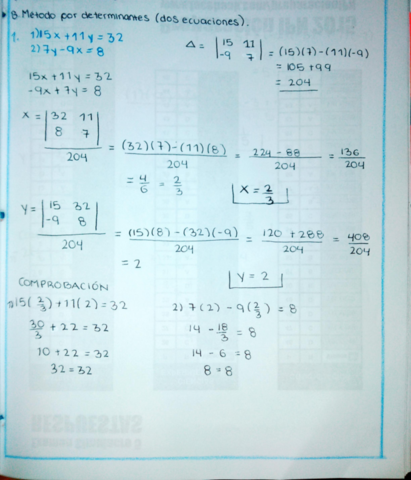 8. Método por determinantes (dos ecuaciones).
1. 1) 15x + 11y = 32
2) 7y - 9x = 8
Δ = | 15 11 | = (15)(7) - (11)(-9)
| -9 7 |
= 105 + 99
= 204
15x + 11y = 32
-9x + 7y = 8
x = | 32 11 |
| 8 7 |
204
= (32)(7) - (11)(8) / 204 = 224 - 88 / 204 = 136 / 204
= 4/6 = 2/3
x = 2/3
y = | 15 32 |
| -9 8 |
204
= (15)(8) - (32)(-9) / 204 = 120 + 288 / 204 = 408 / 204
= 2
y = 2
COMPROBACIÓN
1) 15(2/3) + 11(2) = 32
30/3 + 22 = 32
10 + 22 = 32
32 = 32
2) 7(2) - 9(2/3) = 8
14 - 18/3 = 8
14 - 6 = 8
8 = 8